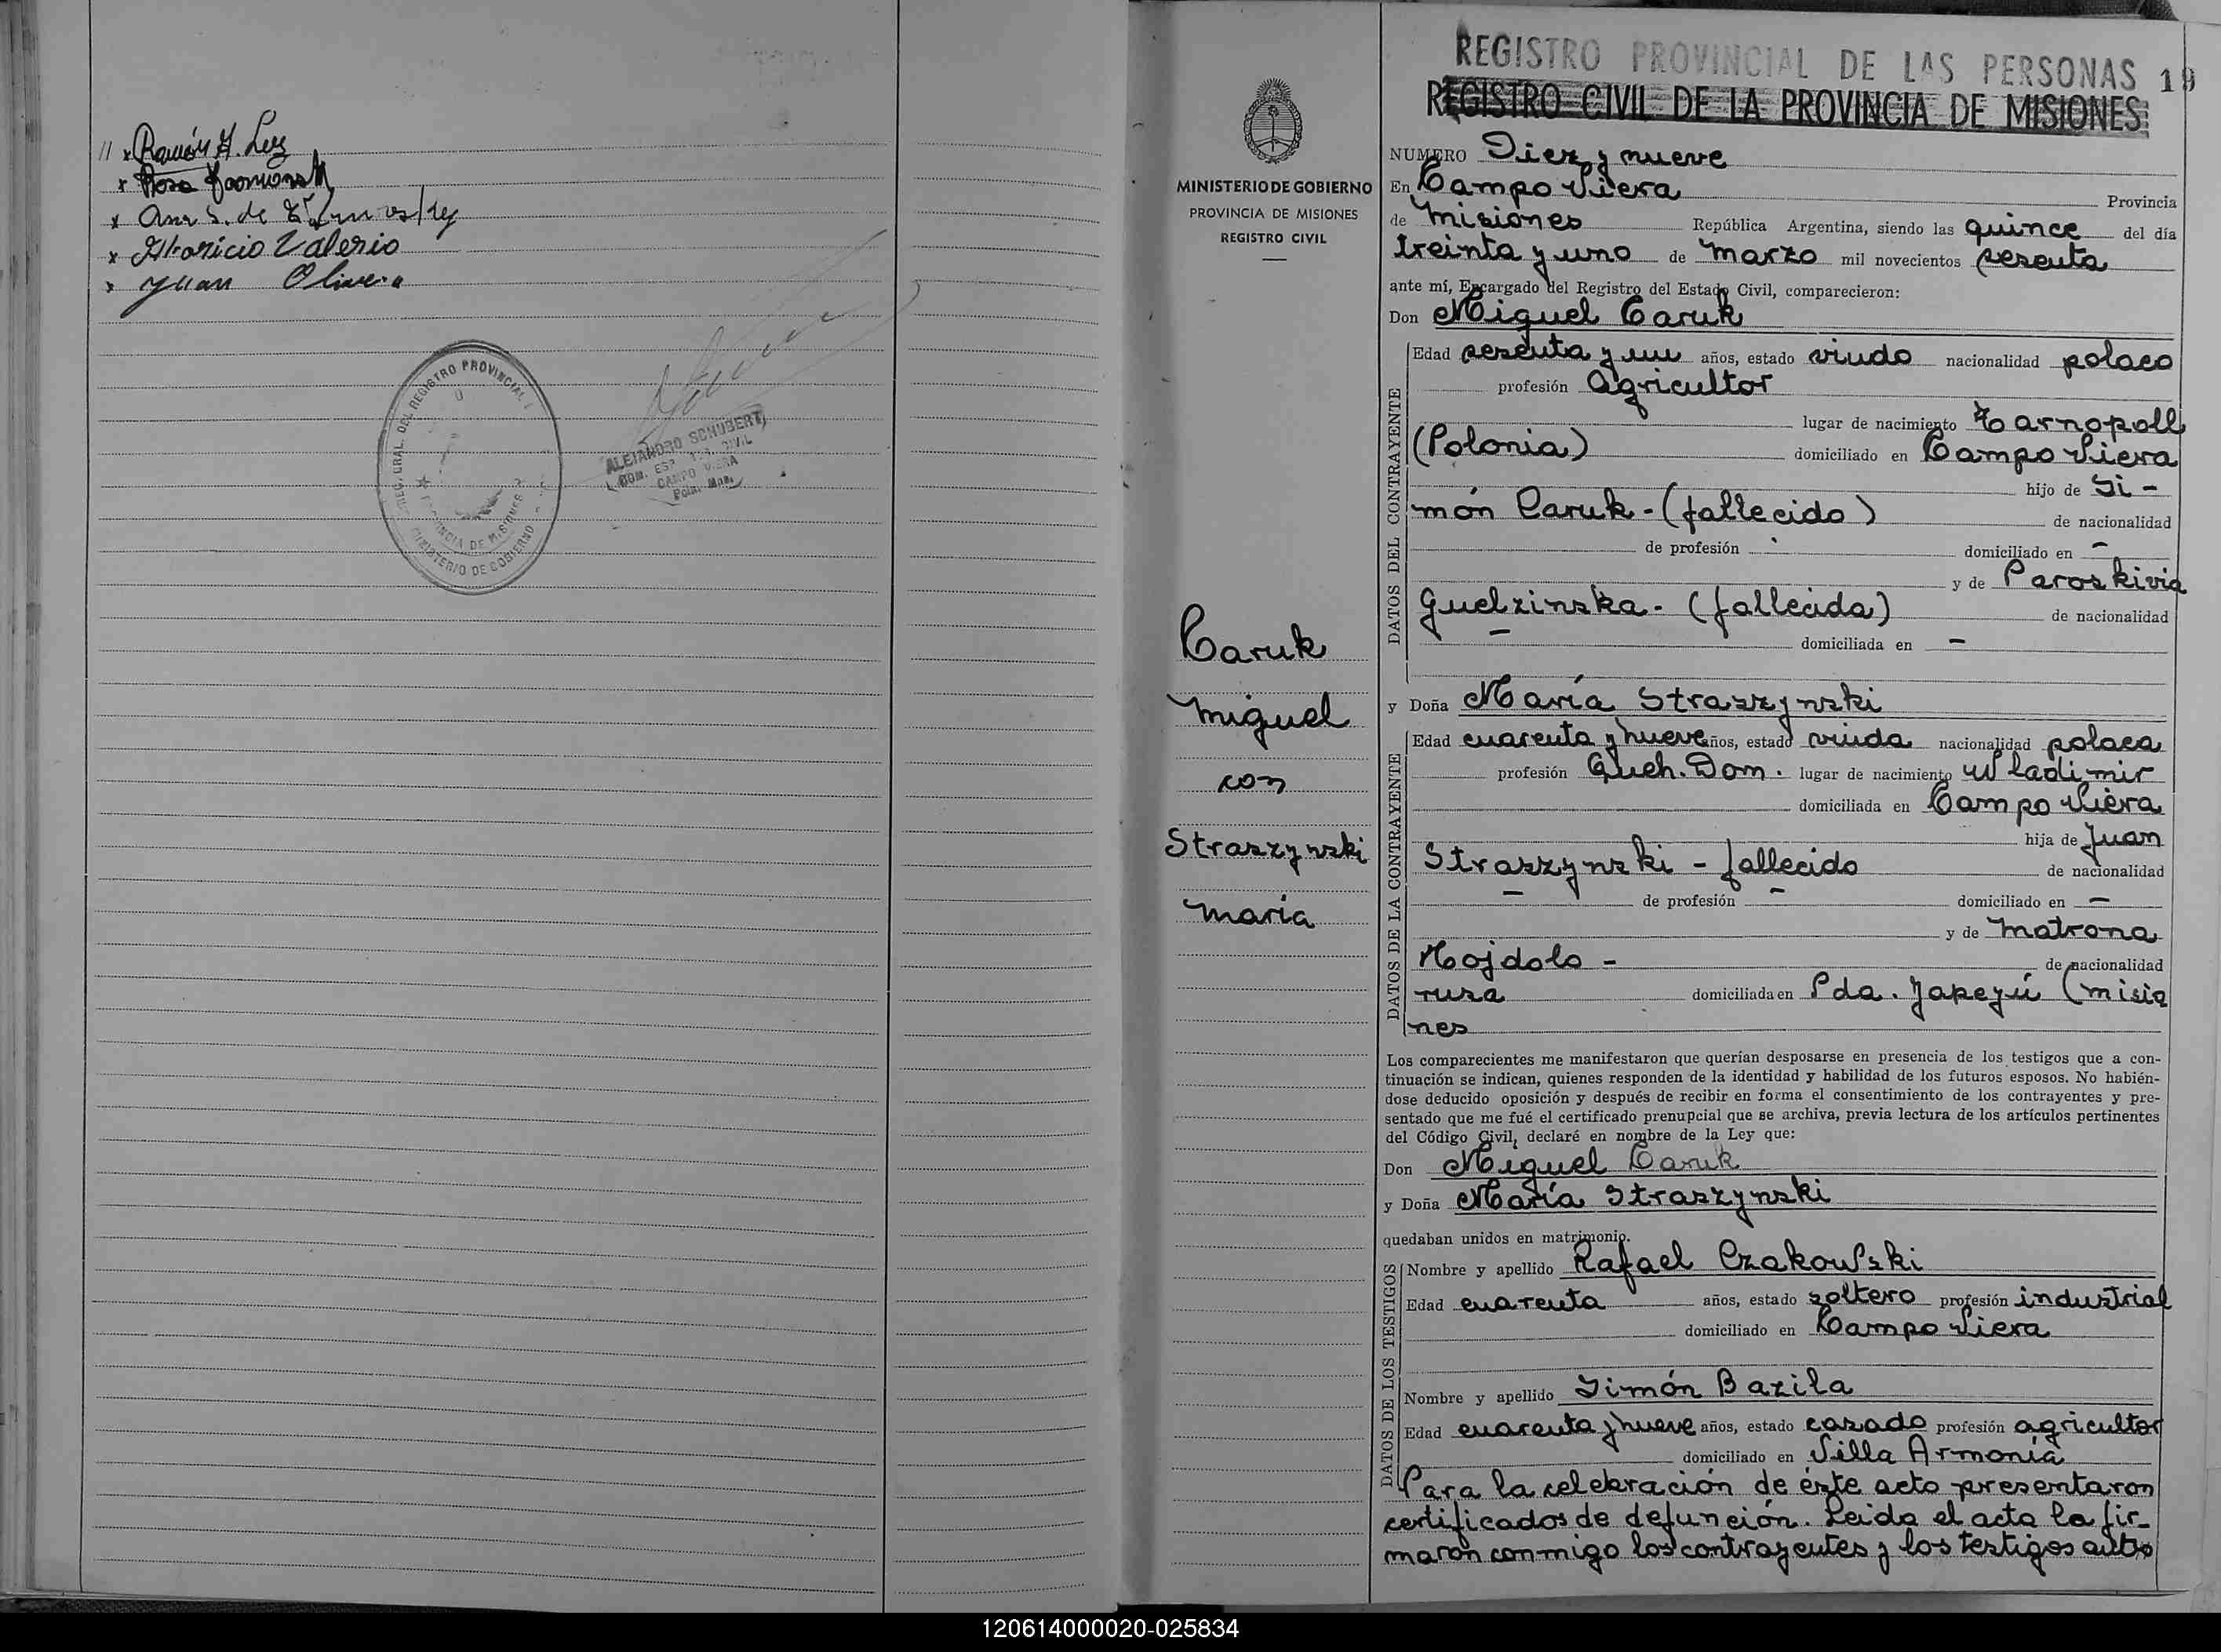 // x Ramón A. Luz
x Rosa
x Ana S. de
x Maricio Valerio
x Juan Olivera
REG. GRAL. DEL REGISTRO PROVINCIAL
PROVINCIA DE MISIONES
MINISTERIO DE GOBIERNO
ALEJANDRO SCHUBERT
CIVIL
CAMPO VIERA
REGISTRO PROVINCIAL DE LAS PERSONAS 19
REGISTRO CIVIL DE LA PROVINCIA DE MISIONES
MINISTERIO DE GOBIERNO
PROVINCIA DE MISIONES
REGISTRO CIVIL
Caruk
Miguel
con
Straszynski
María
NUMERO Diez y nueve
En Campo Viera Provincia
de Misiones República Argentina, siendo las quince del día
treinta y uno de Marzo mil novecientos sesenta
ante mí, Encargado del Registro del Estado Civil, comparecieron:
Don Miguel Caruk
DATOS DEL CONTRAYENTE
Edad sesenta y un años, estado viudo nacionalidad polaco
profesión Agricultor
lugar de nacimiento Tarnopoll
(Polonia) domiciliado en Campo Viera
hijo de Si-
món Caruk - (fallecido) de nacionalidad
de profesión - domiciliado en -
y de Paroskivia
Guelzinska - (fallecida) de nacionalidad
- domiciliada en -
y Doña María Straszynski
DATOS DE LA CONTRAYENTE
Edad cuarenta y nueve años, estado viuda nacionalidad polaca
profesión Queh. Dom. lugar de nacimiento Wladimir
domiciliada en Campo Viera
hija de Juan
Straszynski - fallecido de nacionalidad
- de profesión - domiciliado en -
y de Matrona
Hojdolo - de nacionalidad
rusa domiciliada en Pda. Yapeyú (Misio
nes
Los comparecientes me manifestaron que querían desposarse en presencia de los testigos que a con-
tinuación se indican, quienes responden de la identidad y habilidad de los futuros esposos. No habién-
dose deducido oposición y después de recibir en forma el consentimiento de los contrayentes y pre-
sentado que me fué el certificado prenupcial que se archiva, previa lectura de los artículos pertinentes
del Código Civil, declaré en nombre de la Ley que:
Don Miguel Caruk
y Doña María Straszynski
quedaban unidos en matrimonio.
DATOS DE LOS TESTIGOS
Nombre y apellido Rafael Czakowski
Edad cuarenta años, estado soltero profesión industrial
domiciliado en Campo Viera
Nombre y apellido Simón Bazila
Edad cuarenta y nueve años, estado casado profesión agricultor
domiciliado en Villa Armonía
Para la celebración de éste acto presentaron
certificados de defunción. Leida el acta la fir-
maron conmigo los contrayentes y los testigos antes
120614000020-025834